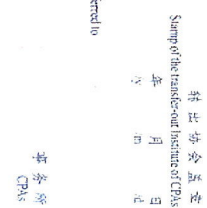 转出协会盖章
Stamp of the transfer-out Institute of CPAs
年 月 日
/y /m /d
erred to
事务所
CPAs